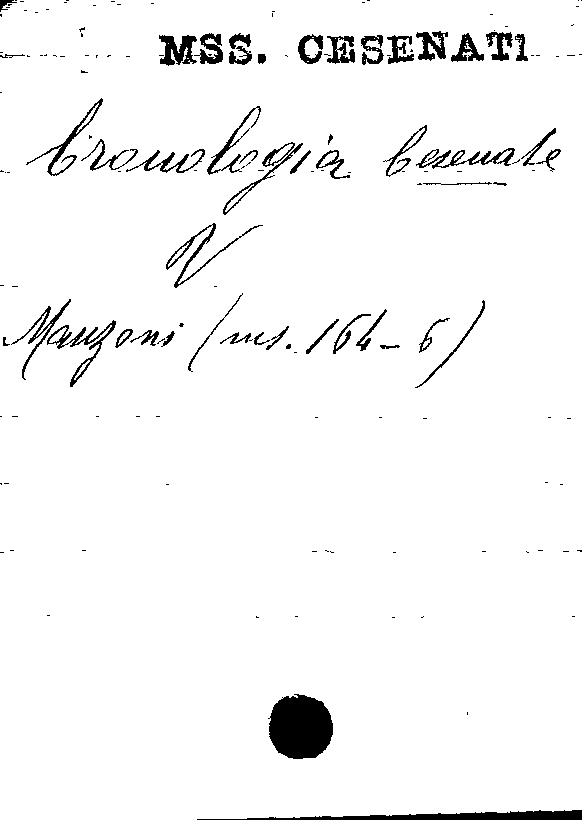 MSS. CESENATI
Cronologia Cesenate
V
Manzoni (ms. 164-6)